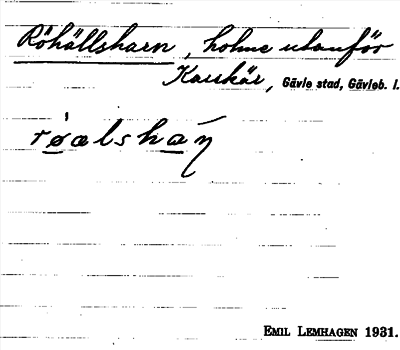 Röhällsharn, holme utanför
Karskär, Gävle stad, Gävleb. l.
røalshaŋ
EMIL LEMHAGEN 1931.